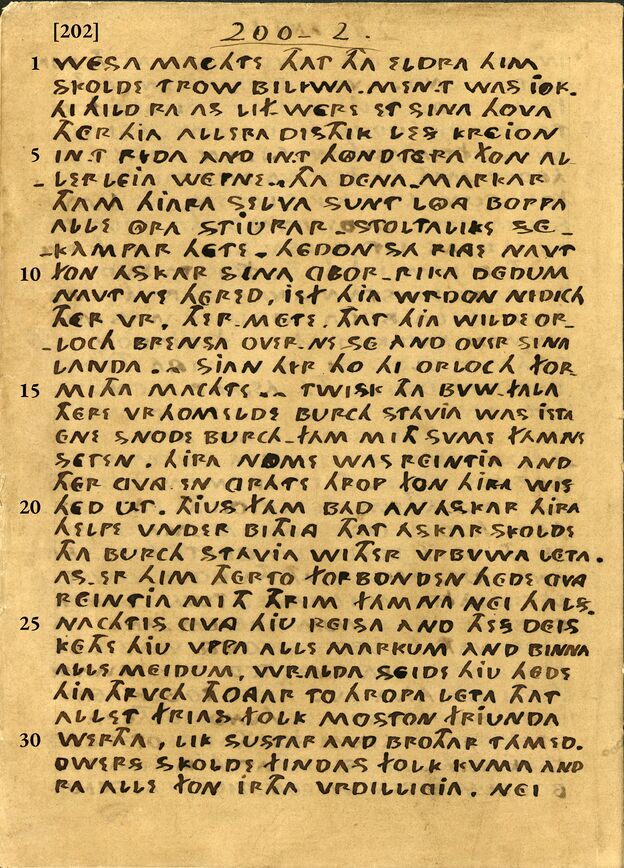 200-2.
[202]
1 WESA MACHTE THAT THA ELDRA HIM
SKOLDE TROW BILYWA. MEN.T WAS JOK.
HI HILD RA AS LIF WERE ET SINA HOVA
THER HIA ALLERA DISTHIK LES KREION
5 IN.T RYDA AND IN.T HONDTERA FON AL
- LERLEIA WEPNE-. THA DENA-MARKAR
THAM HIARA SELVA SUNT LONG BOPPA
ALLE ORA STIURAR -STOLTALIKE SE-
-KAMPAR HETE- HEDON SA RING NAVT
10 FON ASKAR SINA GLOR-RIKA DEDUM
NAVT NE HERED, IEF HIA WRDON NIDICH
THER VR, THER-METE. THAT HIA WILDE OR-
-LOCH BRENSA OVER-NE SE AND OVER SINA
LANDA.- SIAN HYR HO HI ORLOCH FOR
15 MITHA MACHTE.- TWISK THA BVW-FALA
THERE VRHOMELDE BURCH STAVIA WAS IETA
ENE SNODE BURCH-FAM MITH SVME FAMNE
SETEN. HIRA NOME WAS REINTIA AND
THER GVNG EN GRATE HROP FON HIRA WIS
20 HED UT. THIUS FAM BAD AN ASKAR HIRA
HELPE VNDER BITHIA THAT ASKAR SKOLDE
THA BURCH STAVIA WITHER VPBVWA LETA.
AS-ER HIM THERTO FORBONDEN HEDE GVNG
REINTIA MITH THRIM FAMNA NEI HALS.
25 NACHTIS GVNG HIU REISA AND THES DEIS
KETHE HIU VPPA ALLE MARKUM AND BINNA
ALLE MEIDUM, WRALDA SEIDE HIU HEDE
HIA THRVCH THONGAR TO HROPA LETA THAT
ALLET FRIAS FOLK MOSTON FRIUNDA
30 WERTHA, LIK SUSTAR AND BROTHAR TAMED.
OWERS SKOLDE FINDAS FOLK KVMA AND
RA ALLE FON IRTHA VRDILLIGIA. NEI